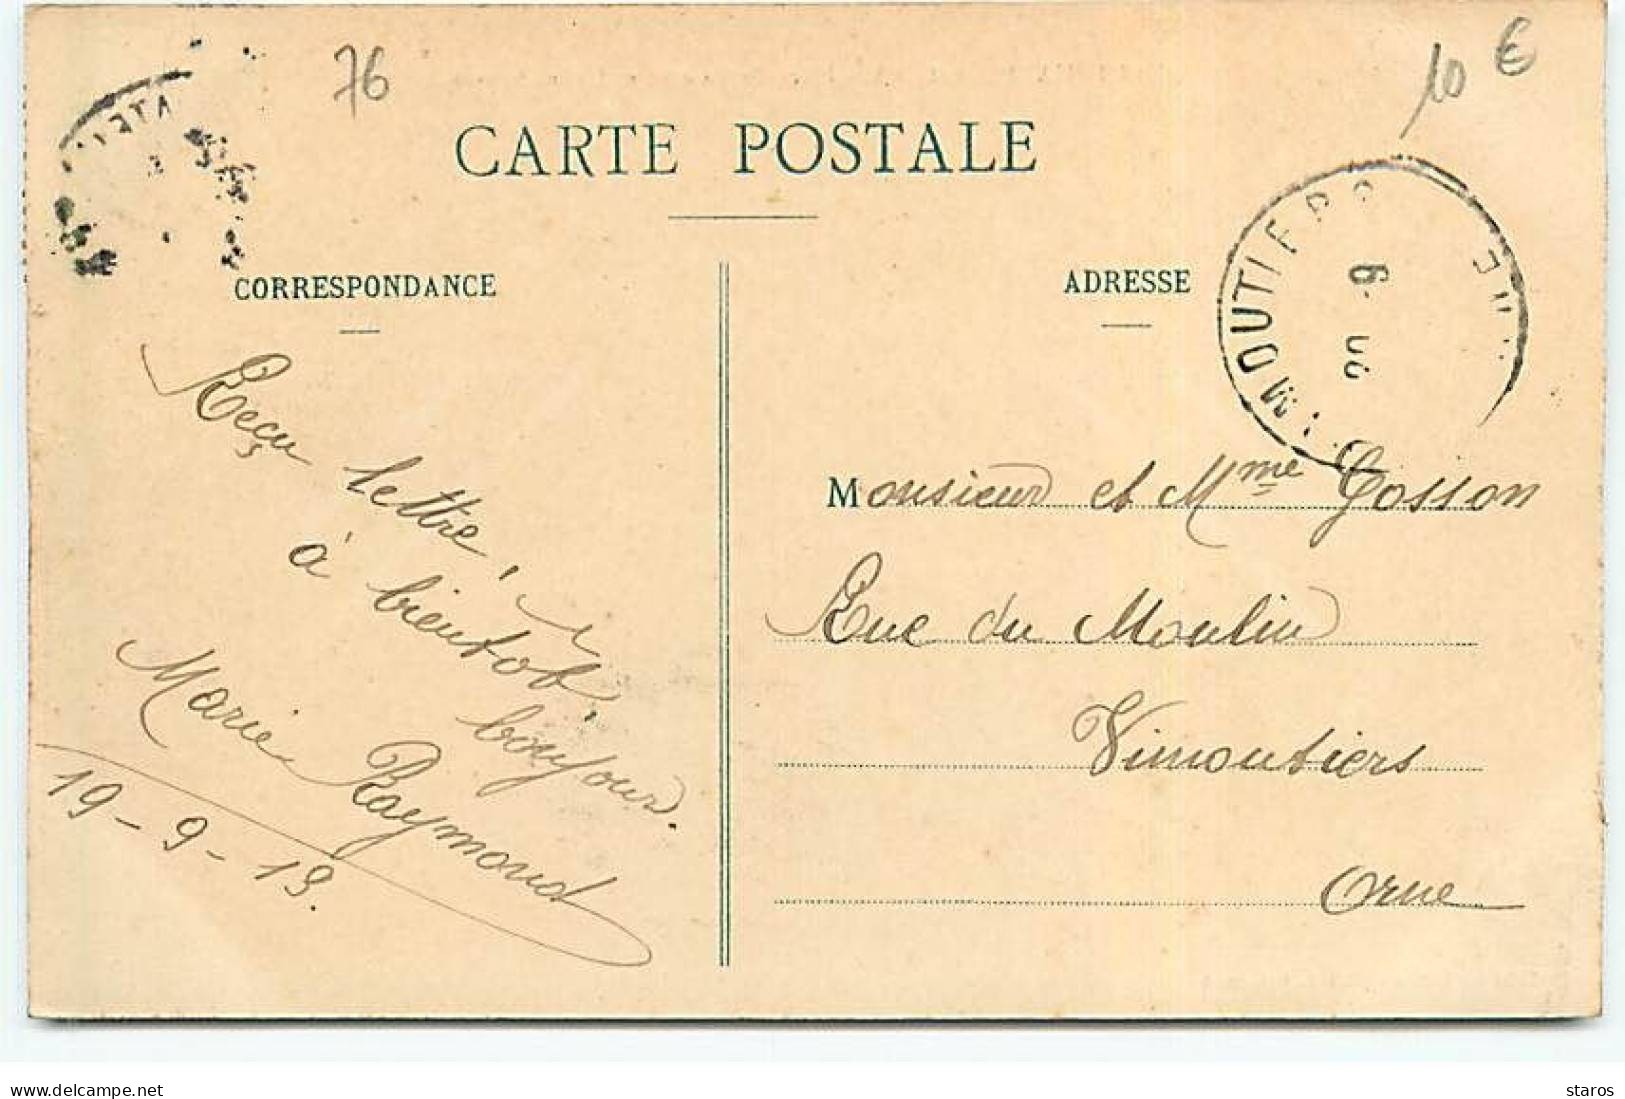 76
10 €
CARTE POSTALE
CORRESPONDANCE
ADRESSE
MOUTIERS
Reçu lettre,
à bientôt,
bonjour.
Marie Raymond
19-9-13.
Monsieur et Mme Gosson
Rue du Moulin
Vimoutiers
Orne
www.delcampe.net
staros